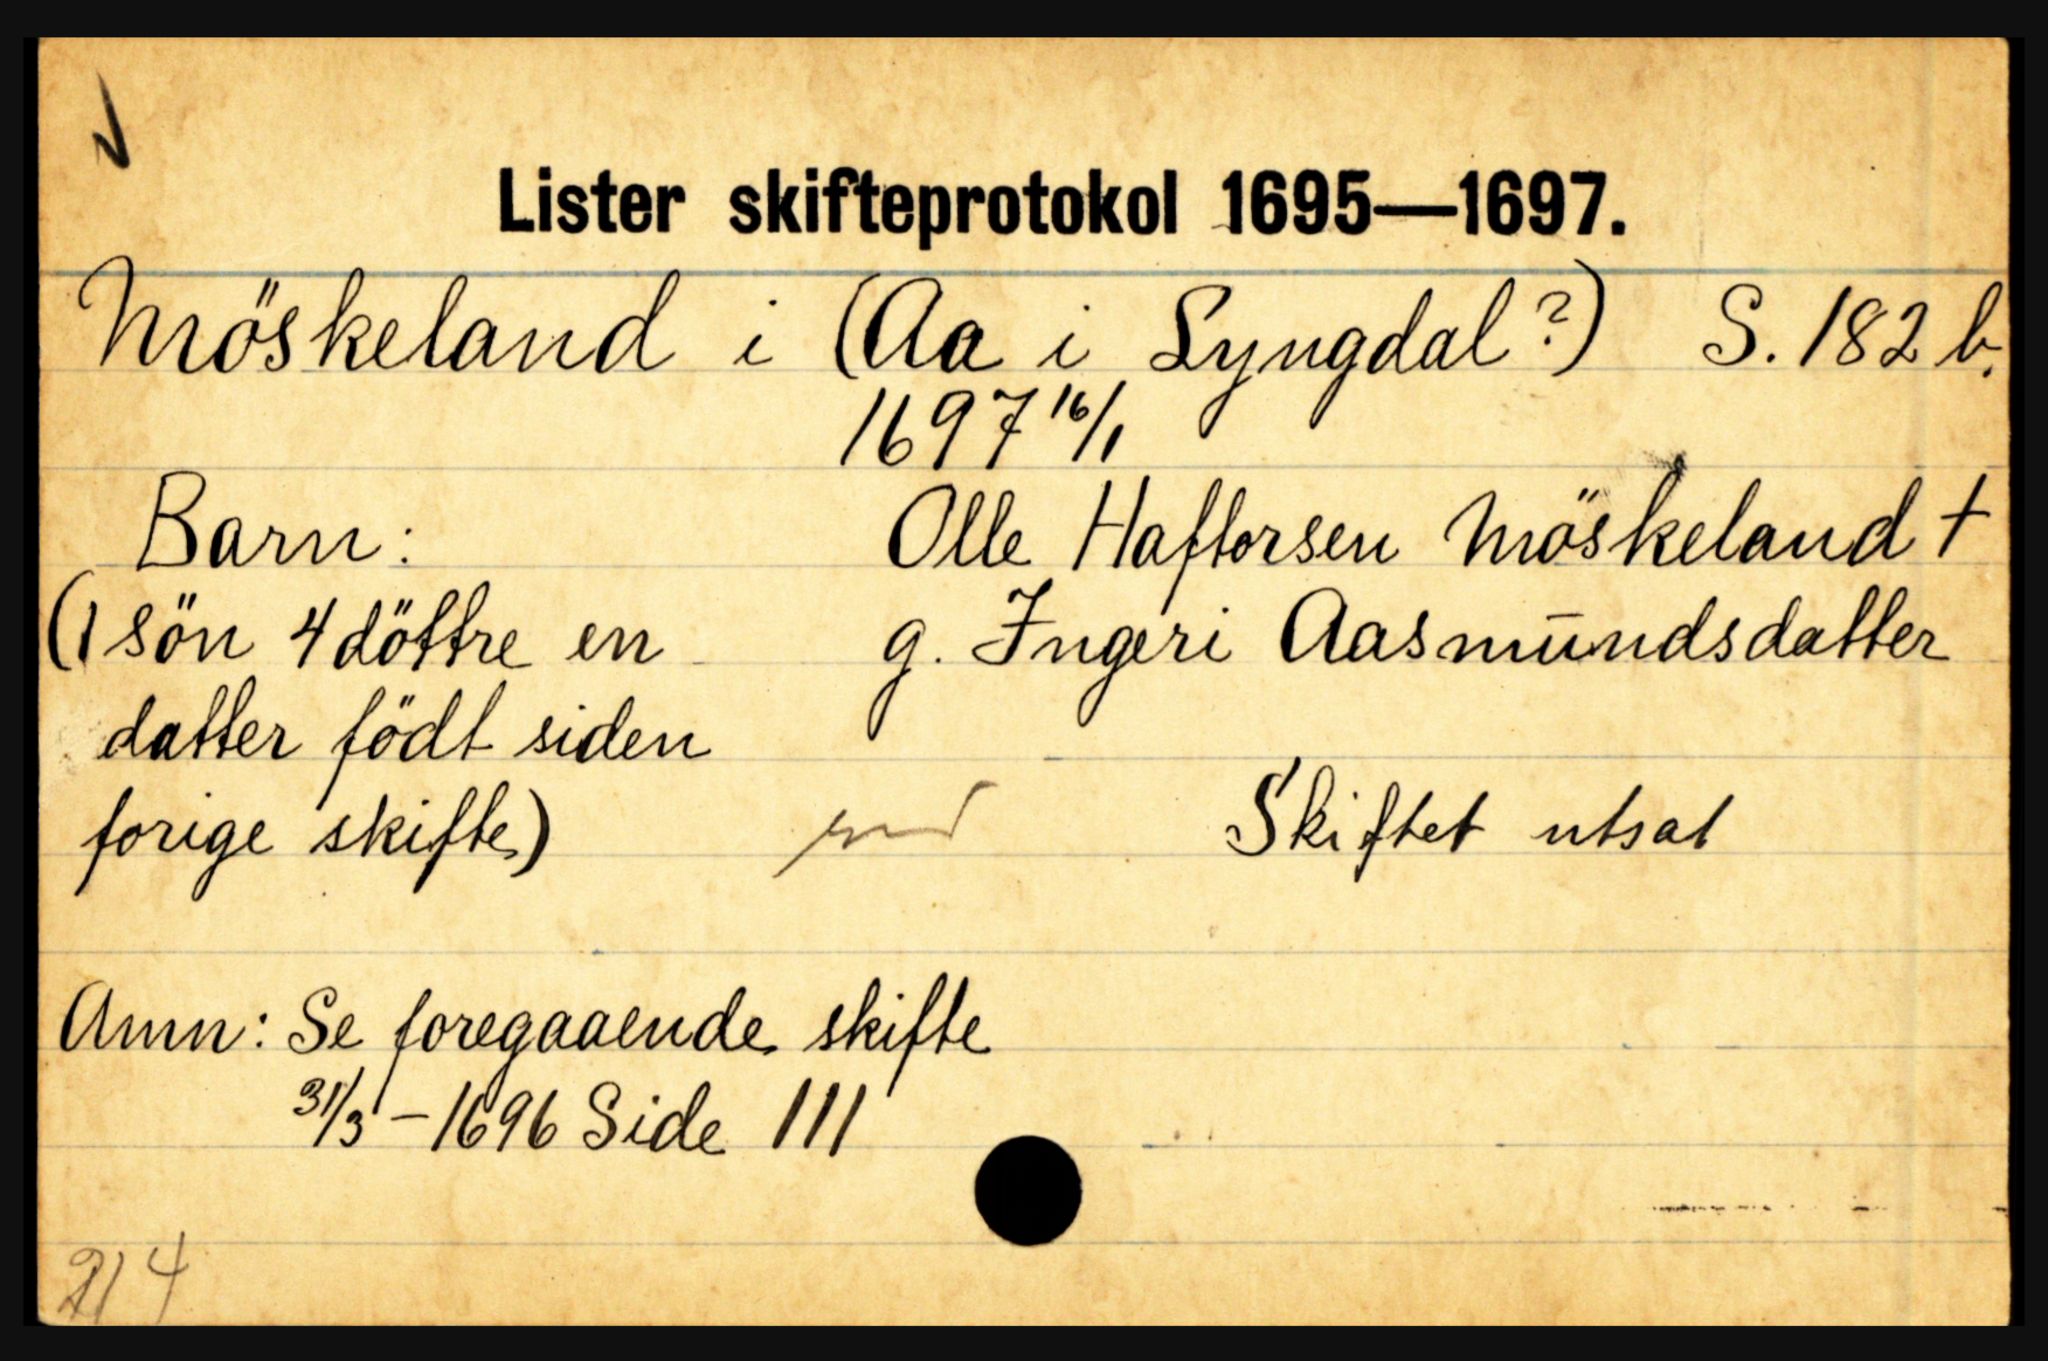 Lister skifteprotokol 1695—1697.
Möskeland i (Aa i Lyngdal?) S. 182 b.
1697 16/1
Barn:
Olle Haftorsen Möskeland †
(1 sön 4 döttre en
g. Ingeri Aasmundsdatter
datter födt siden
forige skifte)
Skiftet utsat
Anm: Se foregaaende skifte
31/3 – 1696 Side 111
214